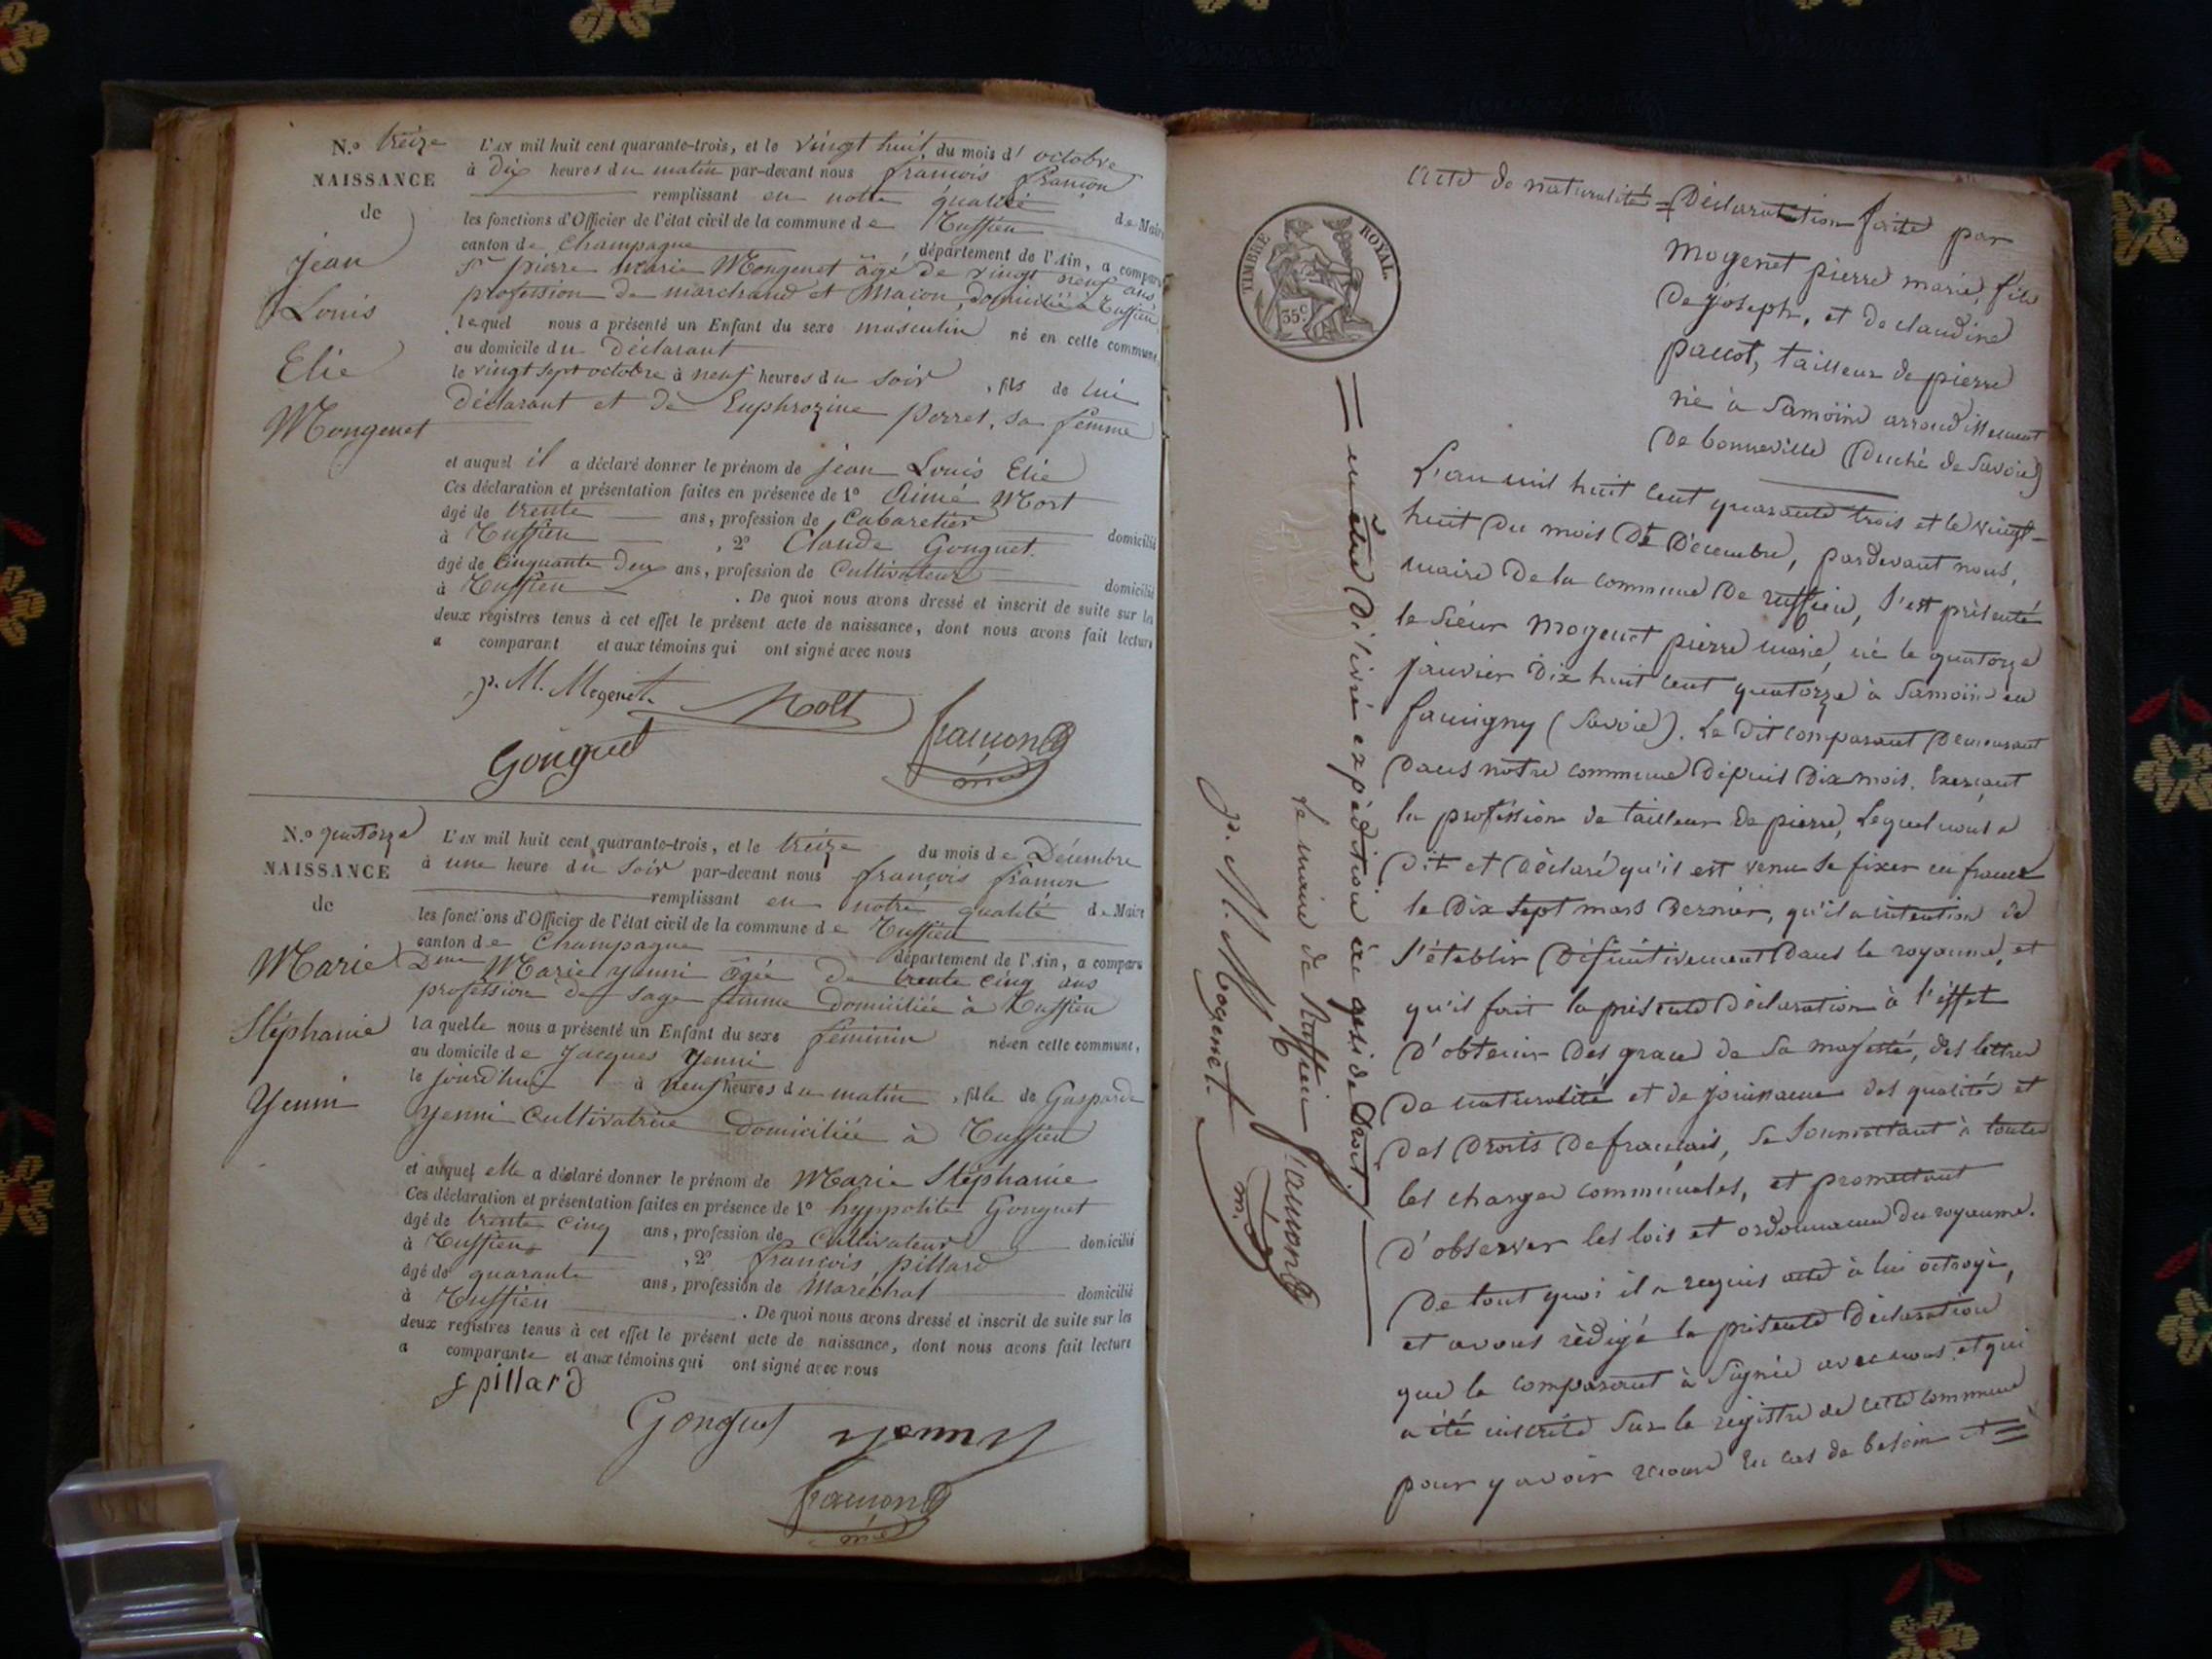 N.o treize
NAISSANCE
de
Jean
Louis
Elie
Mongenet
L'AN mil huit cent quarante-trois, et le vingt huit du mois d' octobre
à Dix heures du matin par-devant nous françois françon
remplissant en notre qualité de Maire
les fonctions d'Officier de l'état civil de la commune de Ruffieu
canton de Champagne, département de l'Ain, a comparu
Sr pierre Marie Mongenet âgé de vingt neuf ans,
profession de marchand et Maçon, domicilié à Ruffieu
lequel nous a présenté un Enfant du sexe masculin né en cette commune,
au domicile du Déclarant
le vingt sept octobre à neuf heures du soir, fils de lui
Déclarant et de Euphrozine perret, sa femme
et auquel il a déclaré donner le prénom de jean Louis Elie
Ces déclaration et présentation faites en présence de 1o Aimé Mort
âgé de trente ans, profession de Cabaretier domicilié
à Ruffieu, 2o Claude Gonguet.
âgé de Cinquante Deux ans, profession de Cultivateur domicilié
à Ruffieu. De quoi nous avons dressé et inscrit de suite sur les
deux registres tenus à cet effet le présent acte de naissance, dont nous avons fait lecture
a comparant et aux témoins qui ont signé avec nous
p. M. Mogenet
Gonguet
N.o quatorze
NAISSANCE
de
Marie
Stéphanie
Yenni
L'AN mil huit cent quarante-trois, et le treize du mois de Décembre
à une heure du soir par-devant nous françois françon
remplissant en notre qualité de Maire
les fonctions d'Officier de l'état civil de la commune de Ruffieu
canton de Champagne département de l'Ain, a comparu
Dme Marie yenni âgée de trente cinq ans
profession de sage femme domiciliée à Ruffieu
laquelle nous a présenté un Enfant du sexe féminin né en cette commune,
au domicile de Jacques Yenni
le jourd'hui à neuf heures du matin, fille de Gasparde
yenni Cultivatrice domiciliée à Ruffieu
et auquel elle a déclaré donner le prénom de Marie Stéphanie
Ces déclaration et présentation faites en présence de 1o hyppolite Gonguet
âgé de trente cinq ans, profession de Cultivateur domicilié
à Ruffieu, 2o françois pillard
âgé de quarante ans, profession de Maréchal domicilié
à Ruffieu. De quoi nous avons dressé et inscrit de suite sur les
deux registres tenus à cet effet le présent acte de naissance, dont nous avons fait lecture
a comparante et aux témoins qui ont signé avec nous
f pillard
Gonguet yenny
TIMBRE ROYAL.
35c
Acte de naturalité = Déclaration faite par
Mogenet pierre marie, fils
de joseph, et de claudine
pacot, tailleur de pierre
né à Samoïn arrondissement
de bonneville (Duché de Savoie)
L'an mil huit cent quarante trois et le vingt-
huit du mois de Décembre, pardevant nous,
maire de la commune de ruffieu, s'est présenté
le Sieur Mogenet pierre marie, né le quatorze
janvier dix huit cent quatorze à Samoïn en
faucigny (Savoie). Le dit comparant Demeurant
dans notre commune depuis dix mois. Exerçant
la profession de tailleur de pierre, Lequel nous a
Dit et Déclaré qu'il est venu se fixer en france
le dix sept mars dernier, qu'il a intention de
s'établir définitivement dans le royaume, et
qu'il fait la présente déclaration à l'effet
d'obtenir des grace de Sa majesté, des lettres
de naturalité et de jouissance des qualités et
des droits de français, se soumettant à toutes
les charges communales, et promettant
d'observer les lois et ordonnances du royaume.
De tout quoi il a requis acte à lui octroyé,
et avons rédigé la présente déclaration
que le comparant à signée avec nous, et qui
a été inscrite sur le registre de cette commune
pour y avoir recours en cas de besoin et =
= en être délivré expédition à ce qui de Droit./
Le maire de Ruffieu
p. M. Mogenet